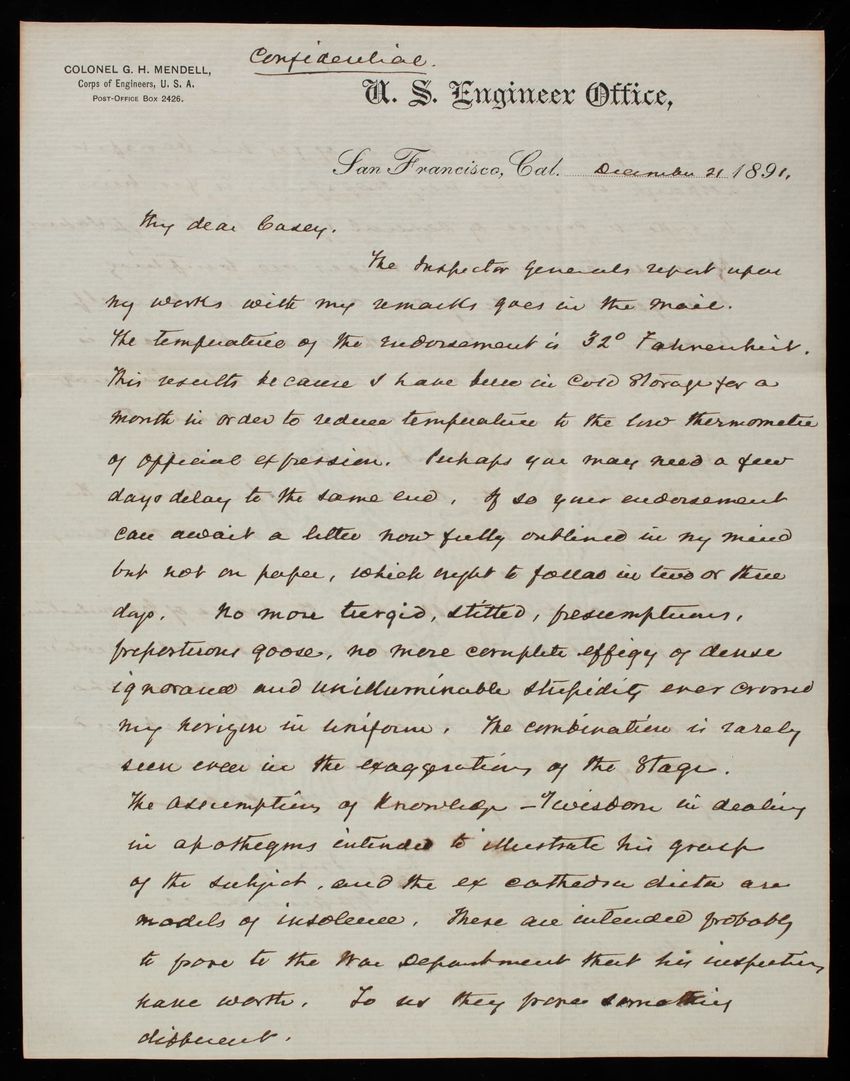 Confidential.
COLONEL G. H. MENDELL,
Corps of Engineers, U. S. A.
POST-OFFICE BOX 2426.
U. S. Engineer Office,
San Francisco, Cal. December 21 1891.
My dear Casey.
The Inspector Generals report upon
my works with my remarks goes in the mail.
The temperature of the endorsement is 32° Fahrenheit.
This results because I have been in cold storage for a
month in order to reduce temperature to the low thermometer
of official expression. Perhaps you may need a few
days delay to the same end. If so your endorsement
can await a letter now fully outlined in my mind
but not on paper, which ought to follow in two or three
days. No more turgid, stilted, presumptuous,
preposterous goose, no more complete effigy of dense
ignorance and unilluminable stupidity ever crossed
my horizon in uniform. The combination is rarely
seen even in the exaggerations of the Stage.
The assumptions of Knowledge - of wisdom in dealing
in apothegms intended to illustrate his grasp
of the subject, and the ex cathedra dicta are
models of insolence. These are intended probably
to prove to the War Department that his inspections
have worth. To us they prove something
different.